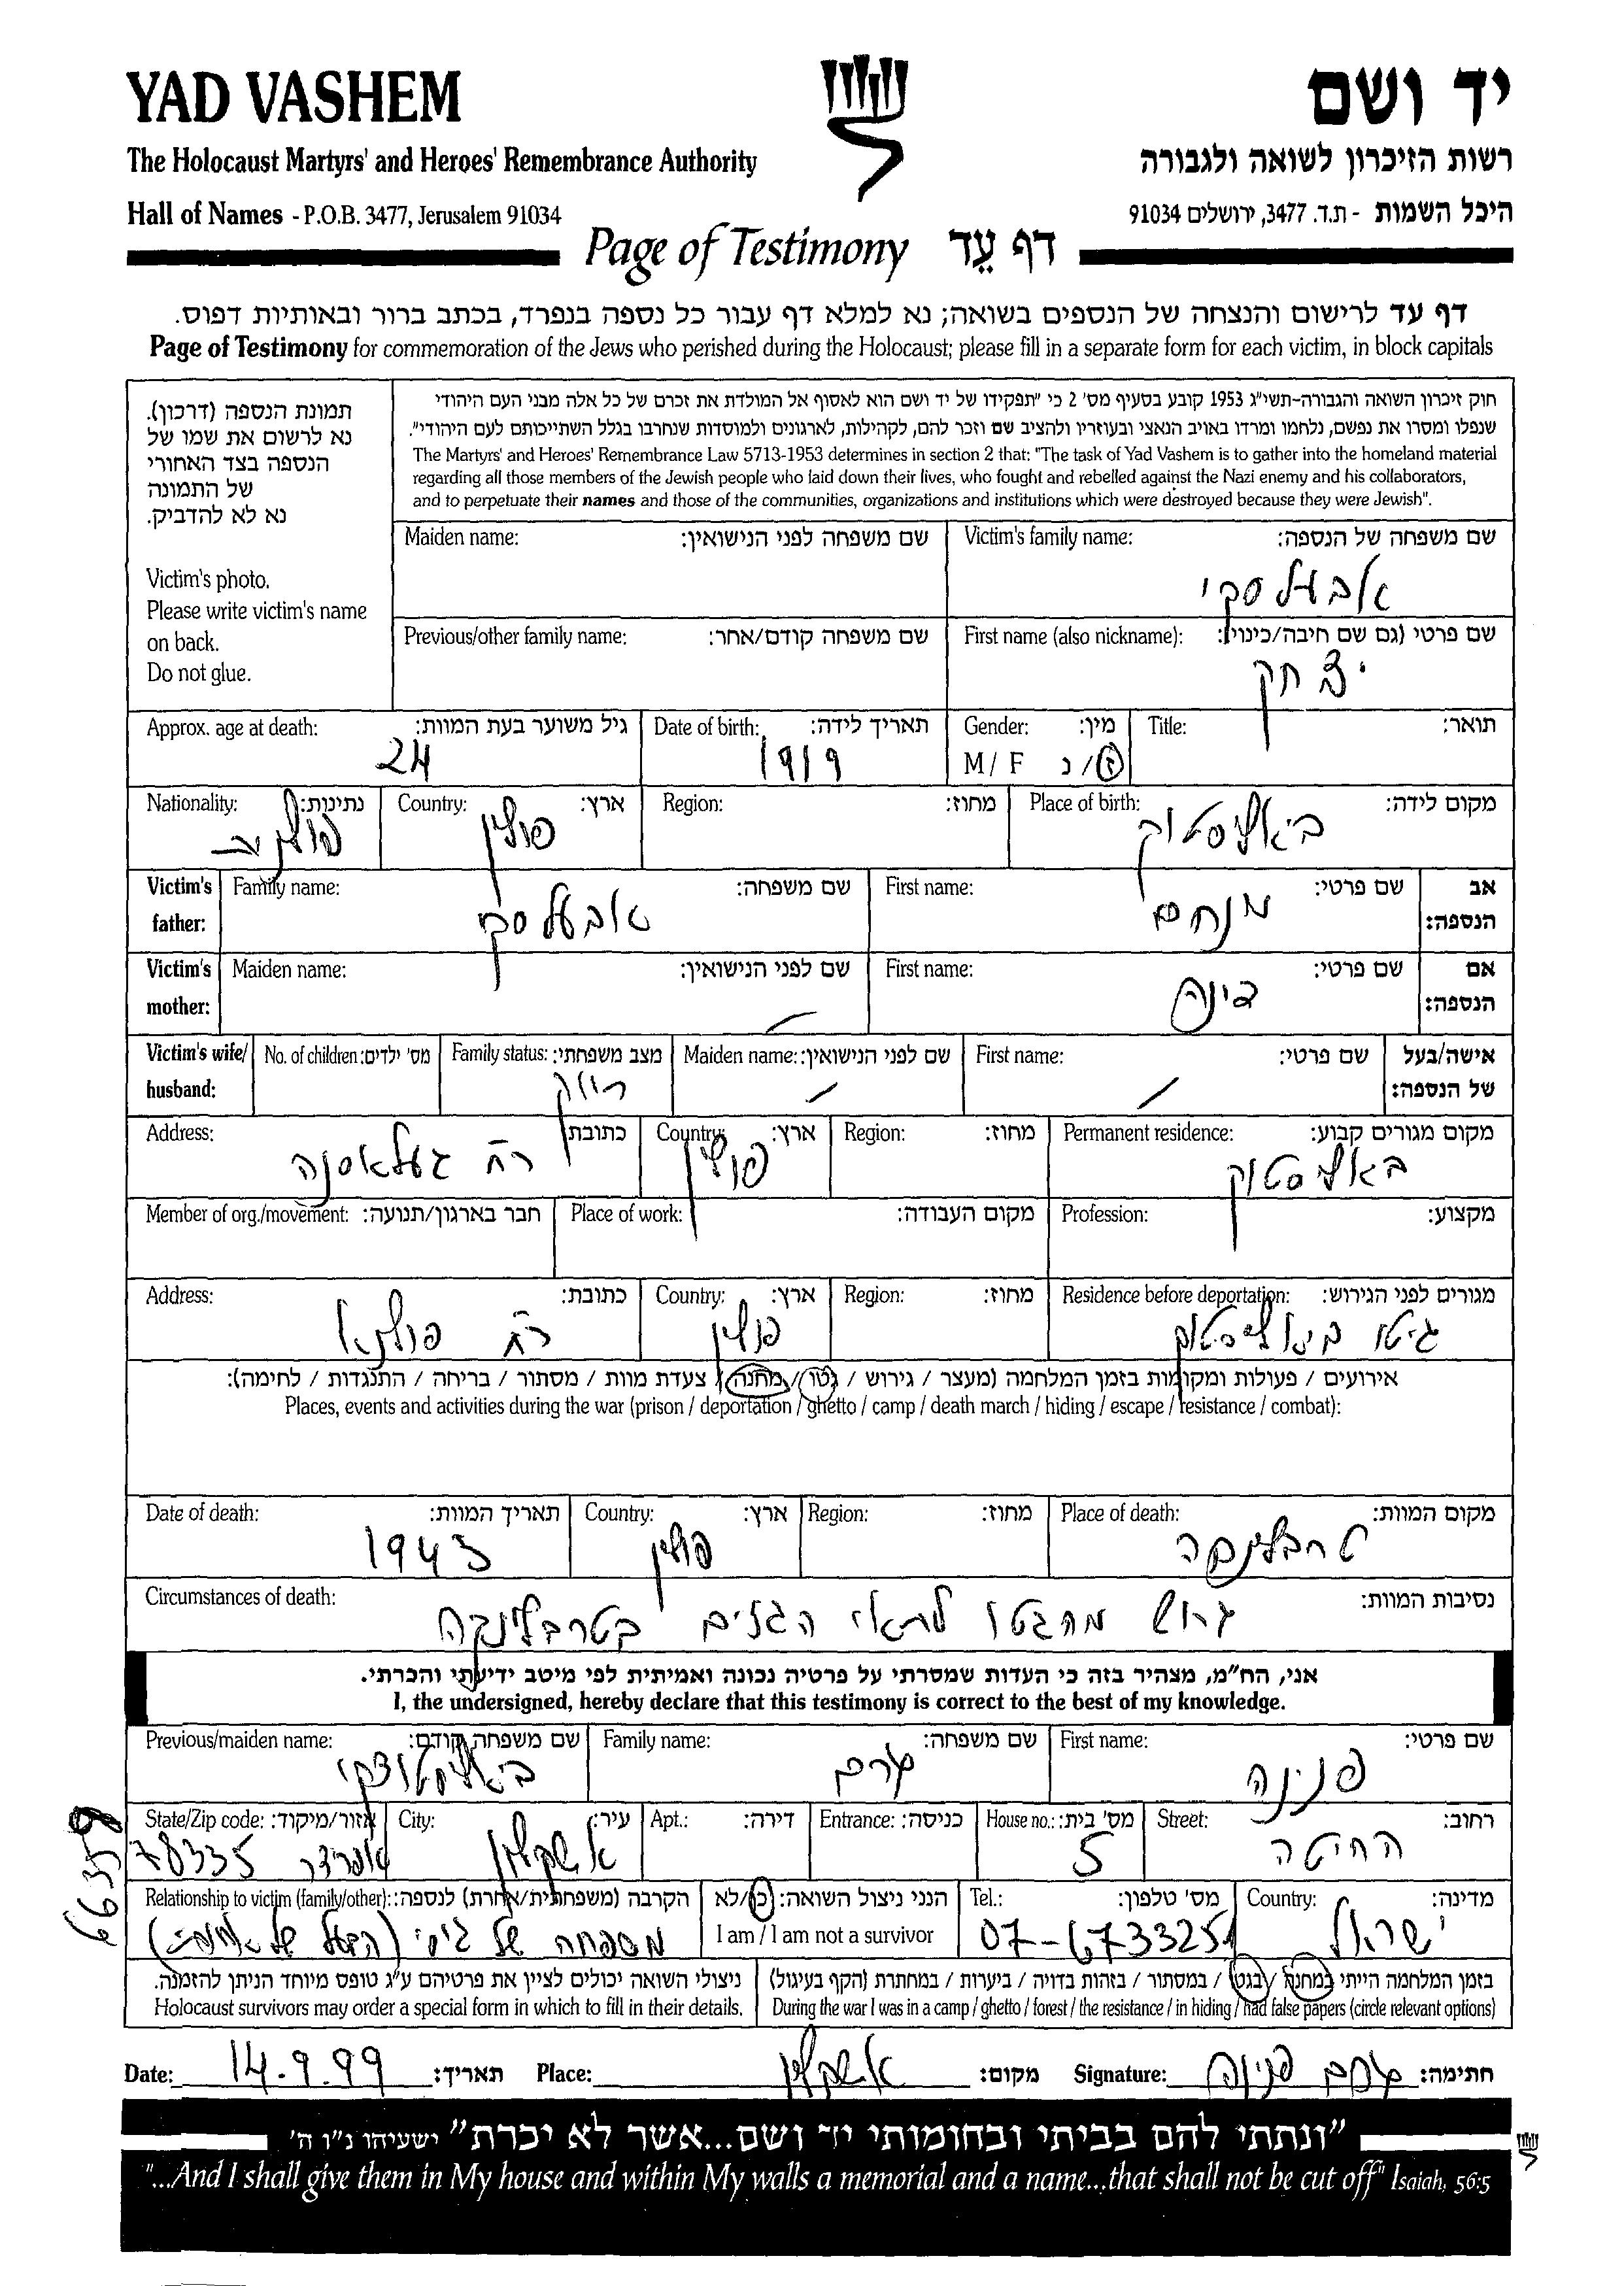 YAD VASHEM
יד ושם
The Holocaust Martyrs' and Heroes' Remembrance Authority
רשות הזיכרון לשואה ולגבורה
Hall of Names - P.O.B. 3477, Jerusalem 91034
היכל השמות - ת.ד. 3477, ירושלים 91034
Page of Testimony דף עֵד
דף עד לרישום והנצחה של הנספים בשואה; נא למלא דף עבור כל נספה בנפרד, בכתב ברור ובאותיות דפוס.
Page of Testimony for commemoration of the Jews who perished during the Holocaust; please fill in a separate form for each victim, in block capitals
תמונת הנספה (דרכון).
נא לרשום את שמו של
הנספה בצד האחורי
של התמונה
נא לא להדביק.
Victim's photo.
Please write victim's name
on back.
Do not glue.
חוק זיכרון השואה והגבורה-תשי"ג 1953 קובע בסעיף מס' 2 כי "תפקידו של יד ושם הוא לאסוף אל המולדת את זכרם של כל אלה מבני העם היהודי
שנפלו ומסרו את נפשם, נלחמו ומרדו באויב הנאצי ובעוזריו ולהציב שם וזכר להם, לקהילות, לארגונים ולמוסדות שנחרבו בגלל השתייכותם לעם היהודי".
The Martyrs' and Heroes' Remembrance Law 5713-1953 determines in section 2 that: "The task of Yad Vashem is to gather into the homeland material
regarding all those members of the Jewish people who laid down their lives, who fought and rebelled against the Nazi enemy and his collaborators,
and to perpetuate their names and those of the communities, organizations and institutions which were destroyed because they were Jewish".
Victim's family name: שם משפחה של הנספה:
Maiden name: שם משפחה לפני הנישואין:
First name (also nickname): שם פרטי (גם שם חיבה/כינוי):
יצחק
Previous/other family name: שם משפחה קודם/אחר:
Title: תואר:
Gender: מין:
M / F ז / נ
Date of birth: תאריך לידה:
1919
Approx. age at death: גיל משוער בעת המוות:
24
Place of birth: מקום לידה:
ביאליסטוק
Region: מחוז:
Country: ארץ:
פולין
Nationality: נתינות:
פולנית
Victim's father: אב הנספה:
First name: שם פרטי:
מנחם
Family name: שם משפחה:
Victim's mother: אם הנספה:
First name: שם פרטי:
דינה
Maiden name: שם לפני הנישואין:
Victim's wife/husband: אישה/בעל של הנספה:
First name: שם פרטי:
Maiden name: שם לפני הנישואין:
Family status: מצב משפחתי:
רווק
No. of children: מס' ילדים:
Permanent residence: מקום מגורים קבוע:
ביאליסטוק
Region: מחוז:
Country: ארץ:
פולין
Address: כתובת:
רח'
Profession: מקצוע:
Place of work: מקום העבודה:
Member of org./movement: חבר בארגון/תנועה:
Residence before deportation: מגורים לפני הגירוש:
גיטו ביאליסטוק
Region: מחוז:
Country: ארץ:
פולין
Address: כתובת:
רח'
אירועים / פעולות ומקומות בזמן המלחמה (מעצר / גירוש / גטו / מחנה / צעדת מוות / מסתור / בריחה / התנגדות / לחימה):
Places, events and activities during the war (prison / deportation / ghetto / camp / death march / hiding / escape / resistance / combat):
Place of death: מקום המוות:
טרבלינקה
Region: מחוז:
Country: ארץ:
פולין
Date of death: תאריך המוות:
1943
Circumstances of death: נסיבות המוות:
גרוש מהגטו לתאי הגזים בטרבלינקה
אני, הח"מ, מצהיר בזה כי העדות שמסרתי על פרטיה נכונה ואמיתית לפי מיטב ידיעתי והכרתי.
I, the undersigned, hereby declare that this testimony is correct to the best of my knowledge.
First name: שם פרטי:
פנינה
Family name: שם משפחה:
Previous/maiden name: שם משפחה קודם:
Street: רחוב:
החיטה
House no.: מס' בית:
5
Entrance: כניסה:
Apt.: דירה:
City: עיר:
אשקלון
State/Zip code: אזור/מיקוד:
אפרידר 78335
Country: מדינה:
ישראל
Tel.: מס' טלפון:
07-6733251
הנני ניצול השואה: כן/לא
I am / I am not a survivor
Relationship to victim (family/other): הקרבה (משפחתית/אחרת) לנספה:
משפחה של גיסי (הבעל של אחותי)
בזמן המלחמה הייתי במחנה / בגטו / במסתור / בזהות בדויה / ביערות / במחתרת (הקף בעיגול)
During the war I was in a camp / ghetto / forest / the resistance / in hiding / had false papers (circle relevant options)
ניצולי השואה יכולים לציין את פרטיהם ע"ג טופס מיוחד הניתן להזמנה.
Holocaust survivors may order a special form in which to fill in their details.
Date: 14.9.99 תאריך: Place: אשקלון מקום: Signature: פנינה חתימה:
"ונתתי להם בביתי ובחומותי יד ושם...אשר לא יכרת" ישעיהו נ"ו ה'
"...And I shall give them in My house and within My walls a memorial and a name...that shall not be cut off" Isaiah, 56:5